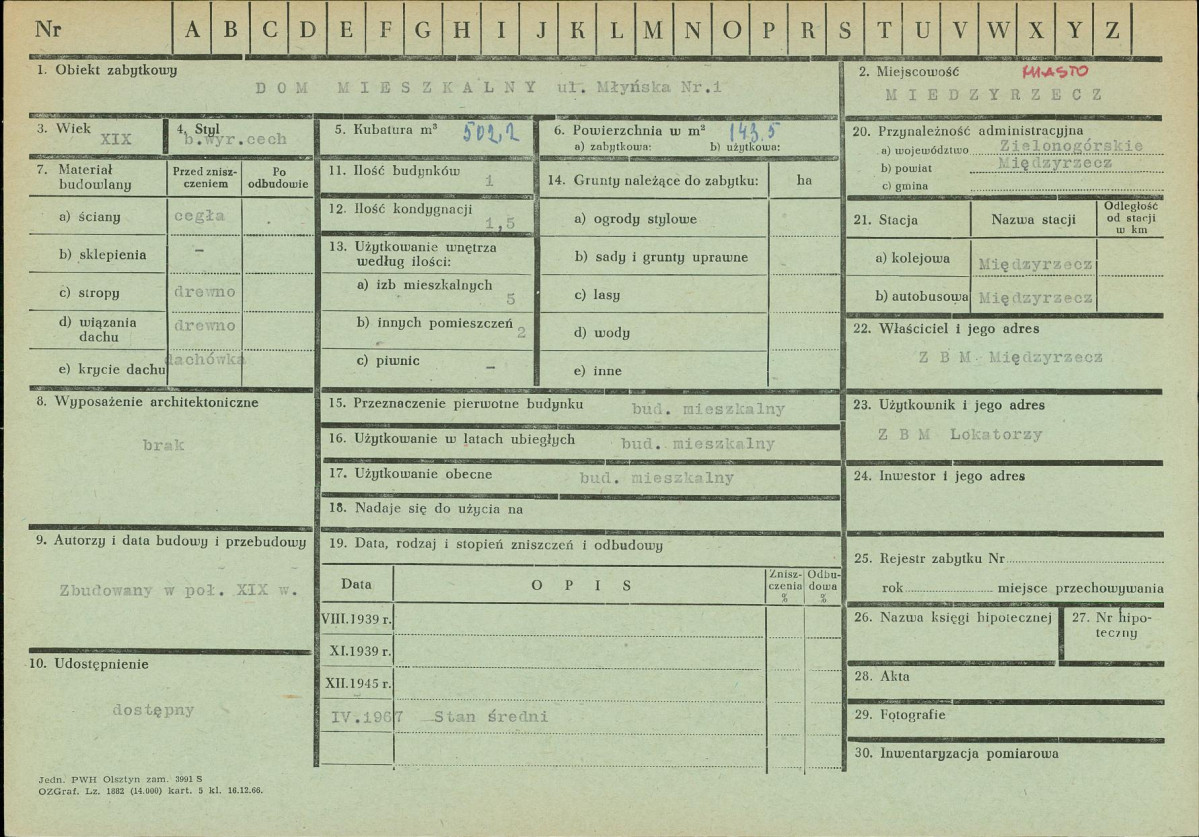 Nr A B C D E F G H I J K L M N O P R S T U V W X Y Z
1. Obiekt zabytkowy
DOM MIESZKALNY ul. Młyńska Nr.1
2. Miejscowość MIASTO
MIEDZYRZECZ
3. Wiek
XIX
4. Styl
b.wyr.cech
5. Kubatura m³ 502,2
6. Powierzchnia w m² 143.5
a) zabytkowa: b) użytkowa:
7. Materiał
budowlany
Przed znisz-
czeniem
Po
odbudowie
a) ściany cegła
b) sklepienia –
c) stropy drewno
d) wiązania
dachu
drewno
e) krycie dachu dachówka
8. Wyposażenie architektoniczne
brak
9. Autorzy i data budowy i przebudowy
Zbudowany w poł. XIX w.
10. Udostępnienie
dostępny
11. Ilość budynków
1
12. Ilość kondygnacji
1,5
13. Użytkowanie wnętrza
według ilości:
a) izb mieszkalnych
5
b) innych pomieszczeń 2
c) piwnic –
14. Grunty należące do zabytku: ha
a) ogrody stylowe
b) sady i grunty uprawne
c) lasy
d) wody
e) inne
15. Przeznaczenie pierwotne budynku bud. mieszkalny
16. Użytkowanie w latach ubiegłych bud. mieszkalny
17. Użytkowanie obecne bud. mieszkalny
18. Nadaje się do użycia na
19. Data, rodzaj i stopień zniszczeń i odbudowy
Data OPIS
Znisz-
czenia
%
Odbu-
dowa
%
VIII.1939 r.
XI.1939 r.
XII.1945 r.
IV.1967 Stan średni
20. Przynależność administracyjna
a) województwo Zielonogórskie
b) powiat Międzyrzecz
c) gmina
21. Stacja Nazwa stacji
Odległość
od stacji
w km
a) kolejowa Międzyrzecz
b) autobusowa Międzyrzecz
22. Właściciel i jego adres
Z B M Międzyrzecz
23. Użytkownik i jego adres
Z B M Lokatorzy
24. Inwestor i jego adres
25. Rejestr zabytku Nr
rok miejsce przechowywania
26. Nazwa księgi hipotecznej
27. Nr hipo-
teczny
28. Akta
29. Fotografie
30. Inwentaryzacja pomiarowa
Jedn. PWH Olsztyn zam. 3991 S
OZGraf. Lz. 1882 (14.000) kart. 5 kl. 16.12.66.